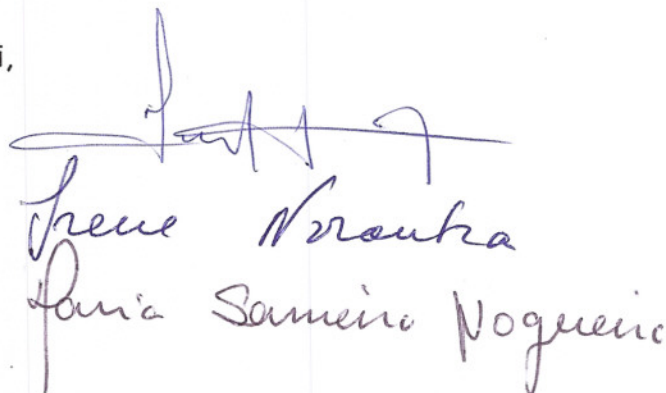 i,
Irene Noronha
Maria Sameiro Nogueira